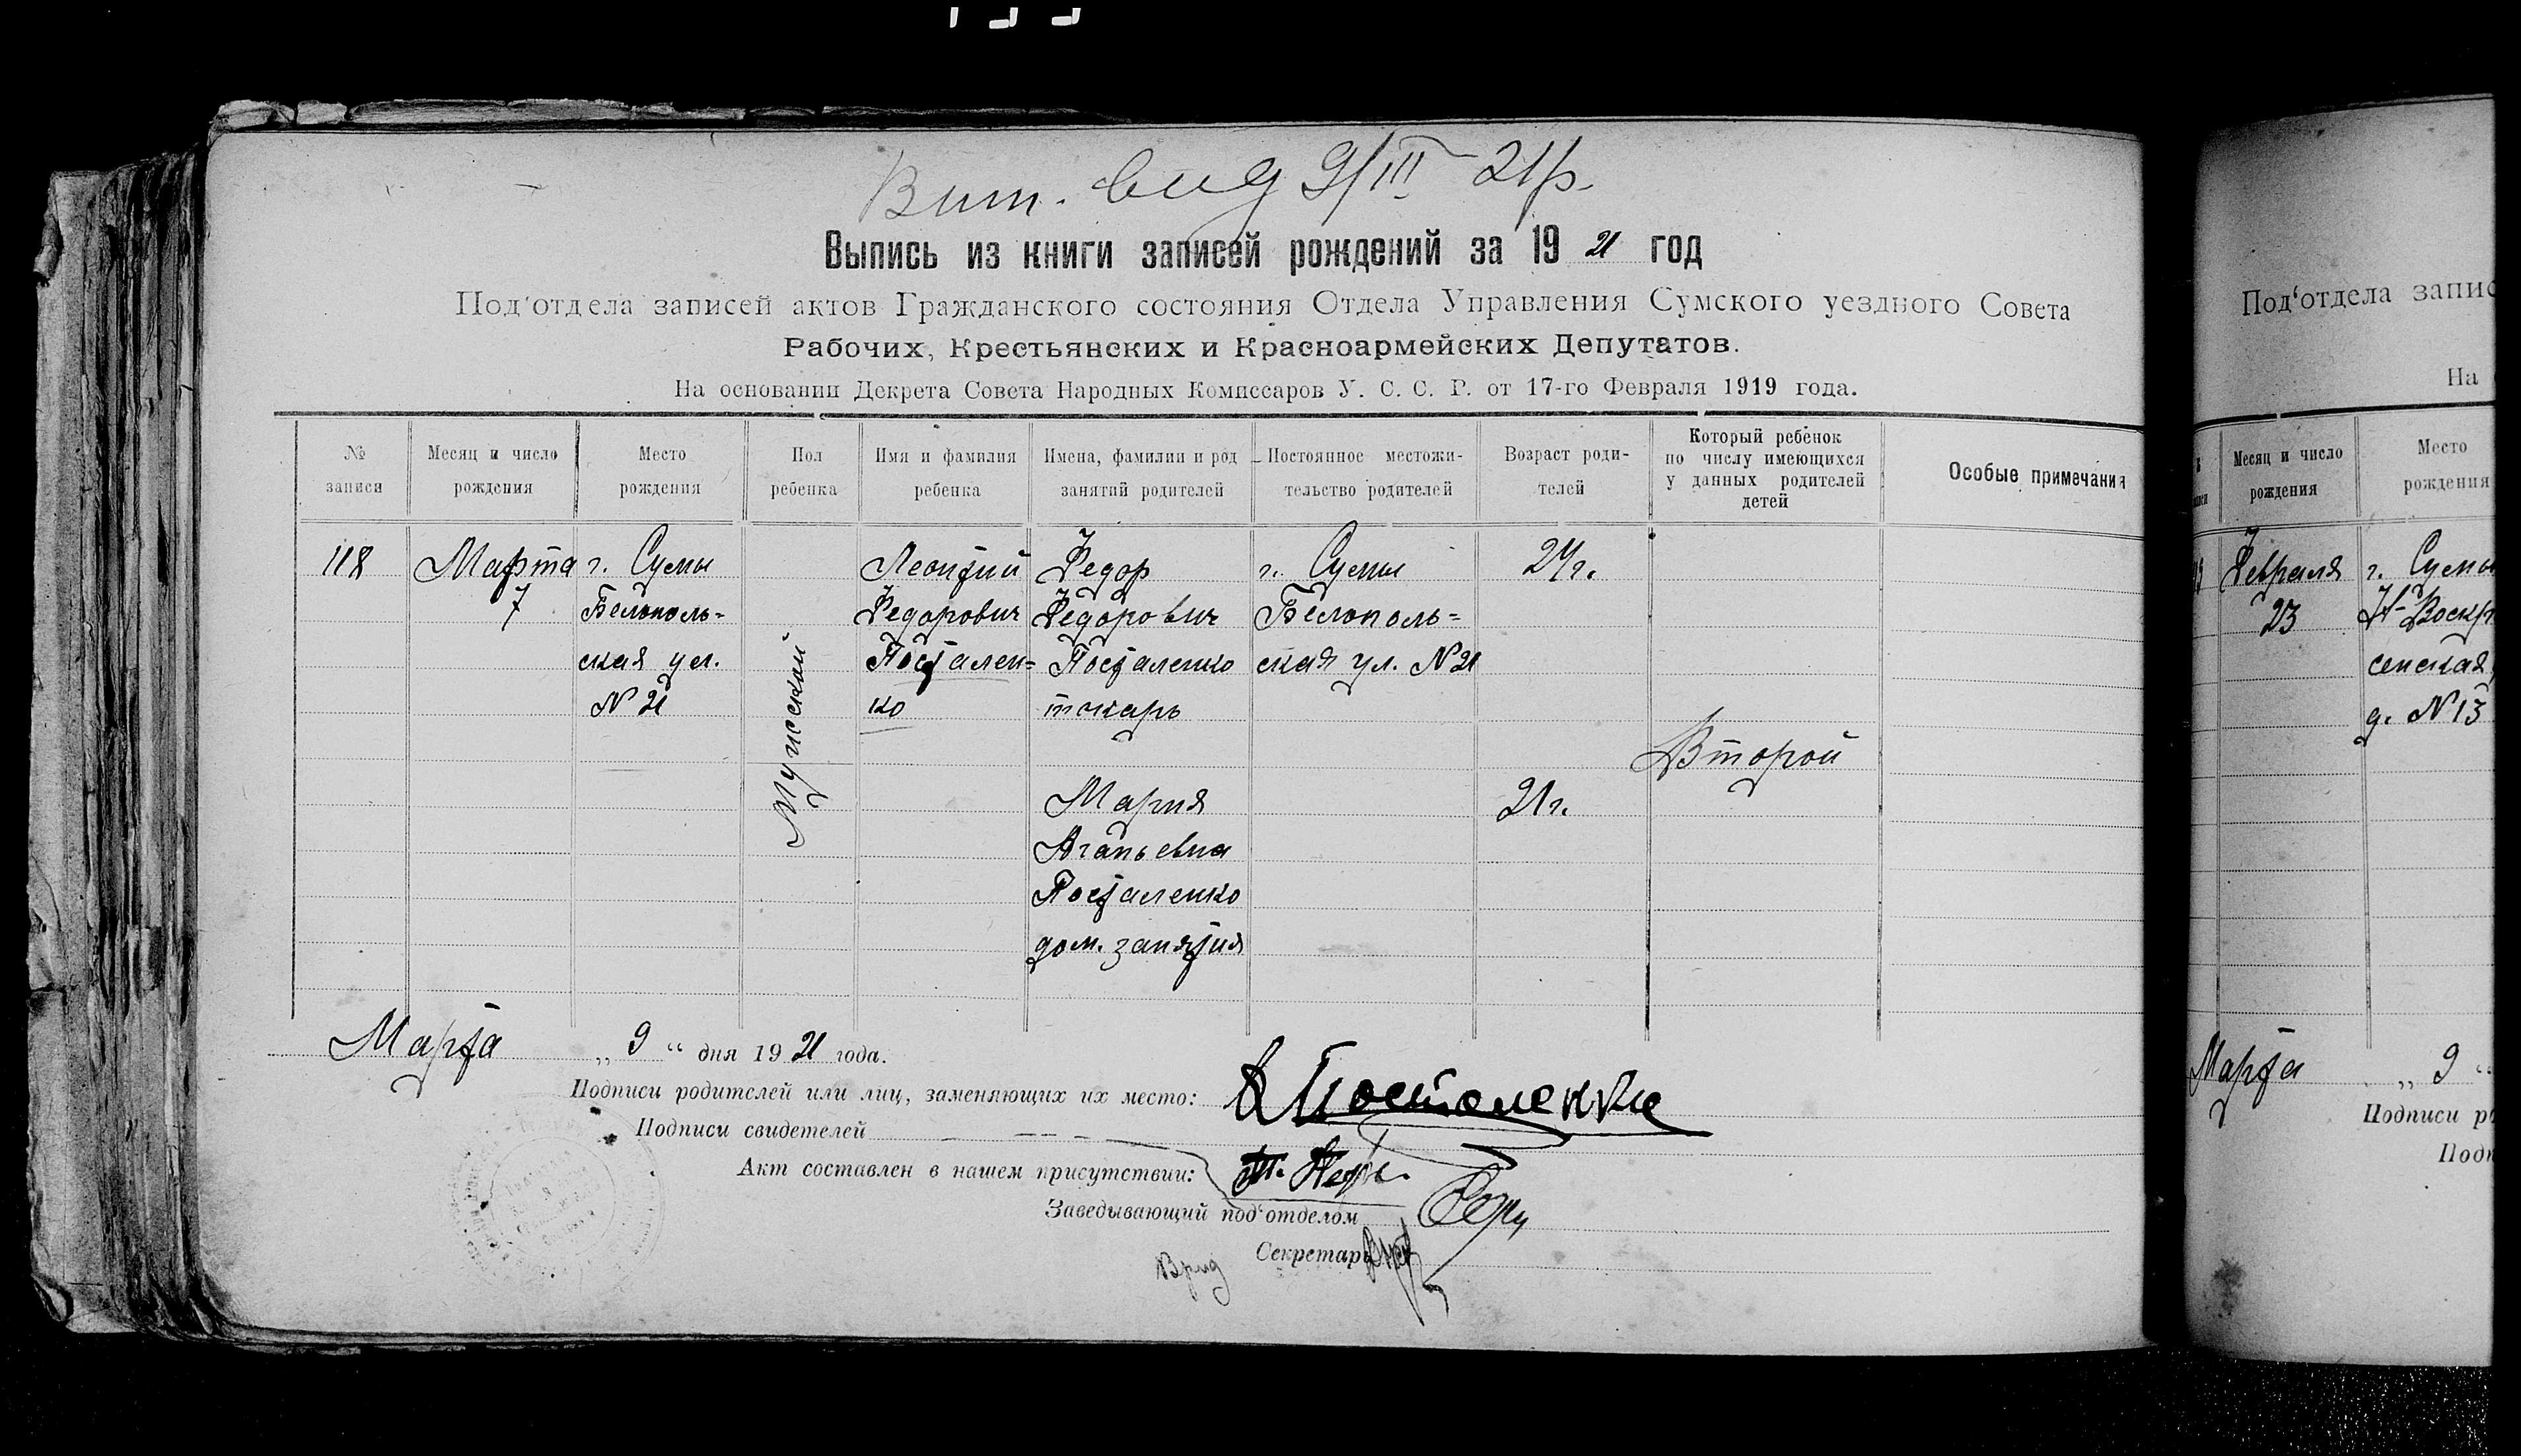 Вит. вид 9/III 21р.
Выпись из книги записей рождений за 19 21 год
Под'отдела записей актов Гражданского состояния Отдела Управления Сумского уездного Совета
Рабочих, Крестьянских и Красноармейских Депутатов.
На основании Декрета Совета Народных Комиссаров У. С. С. Р. от 17-го Февраля 1919 года.
№ записи
Месяц и число рождения
Место рождения
Пол ребенка
Имя и фамилия ребенка
Имена, фамилии и род занятий родителей
Постоянное местожи-
тельство родителей
Возраст роди-
телей
Который ребенок
по числу имеющихся
у данных родителей
детей
Особые примечания
118
Марта
7
г. Сумы
Белополь-
ская ул.
N 21
Мужской
Леонтий
Федорович
Постален-
ко
Федор
Федорович
Посталенко
токарь
Мария
Агапьевна
Посталенко
дом. занятия
г. Сумы
Белополь-
ская ул. N 21
24г.
21г.
Второй
Марта „ 9 “ дня 19 21 года.
Подписи родителей или лиц, заменяющих их место: Посталенко
Подписи свидетелей
Акт составлен в нашем присутствии:
Заведывающий под'отделом
Врид Секретарь
Под'отдела запис
На
Месяц и число
рождения
Место
рождения
Февраля
23
г. Сумы
сенская
д. N 13
Марта „ 9 “
Подписи р
Подп